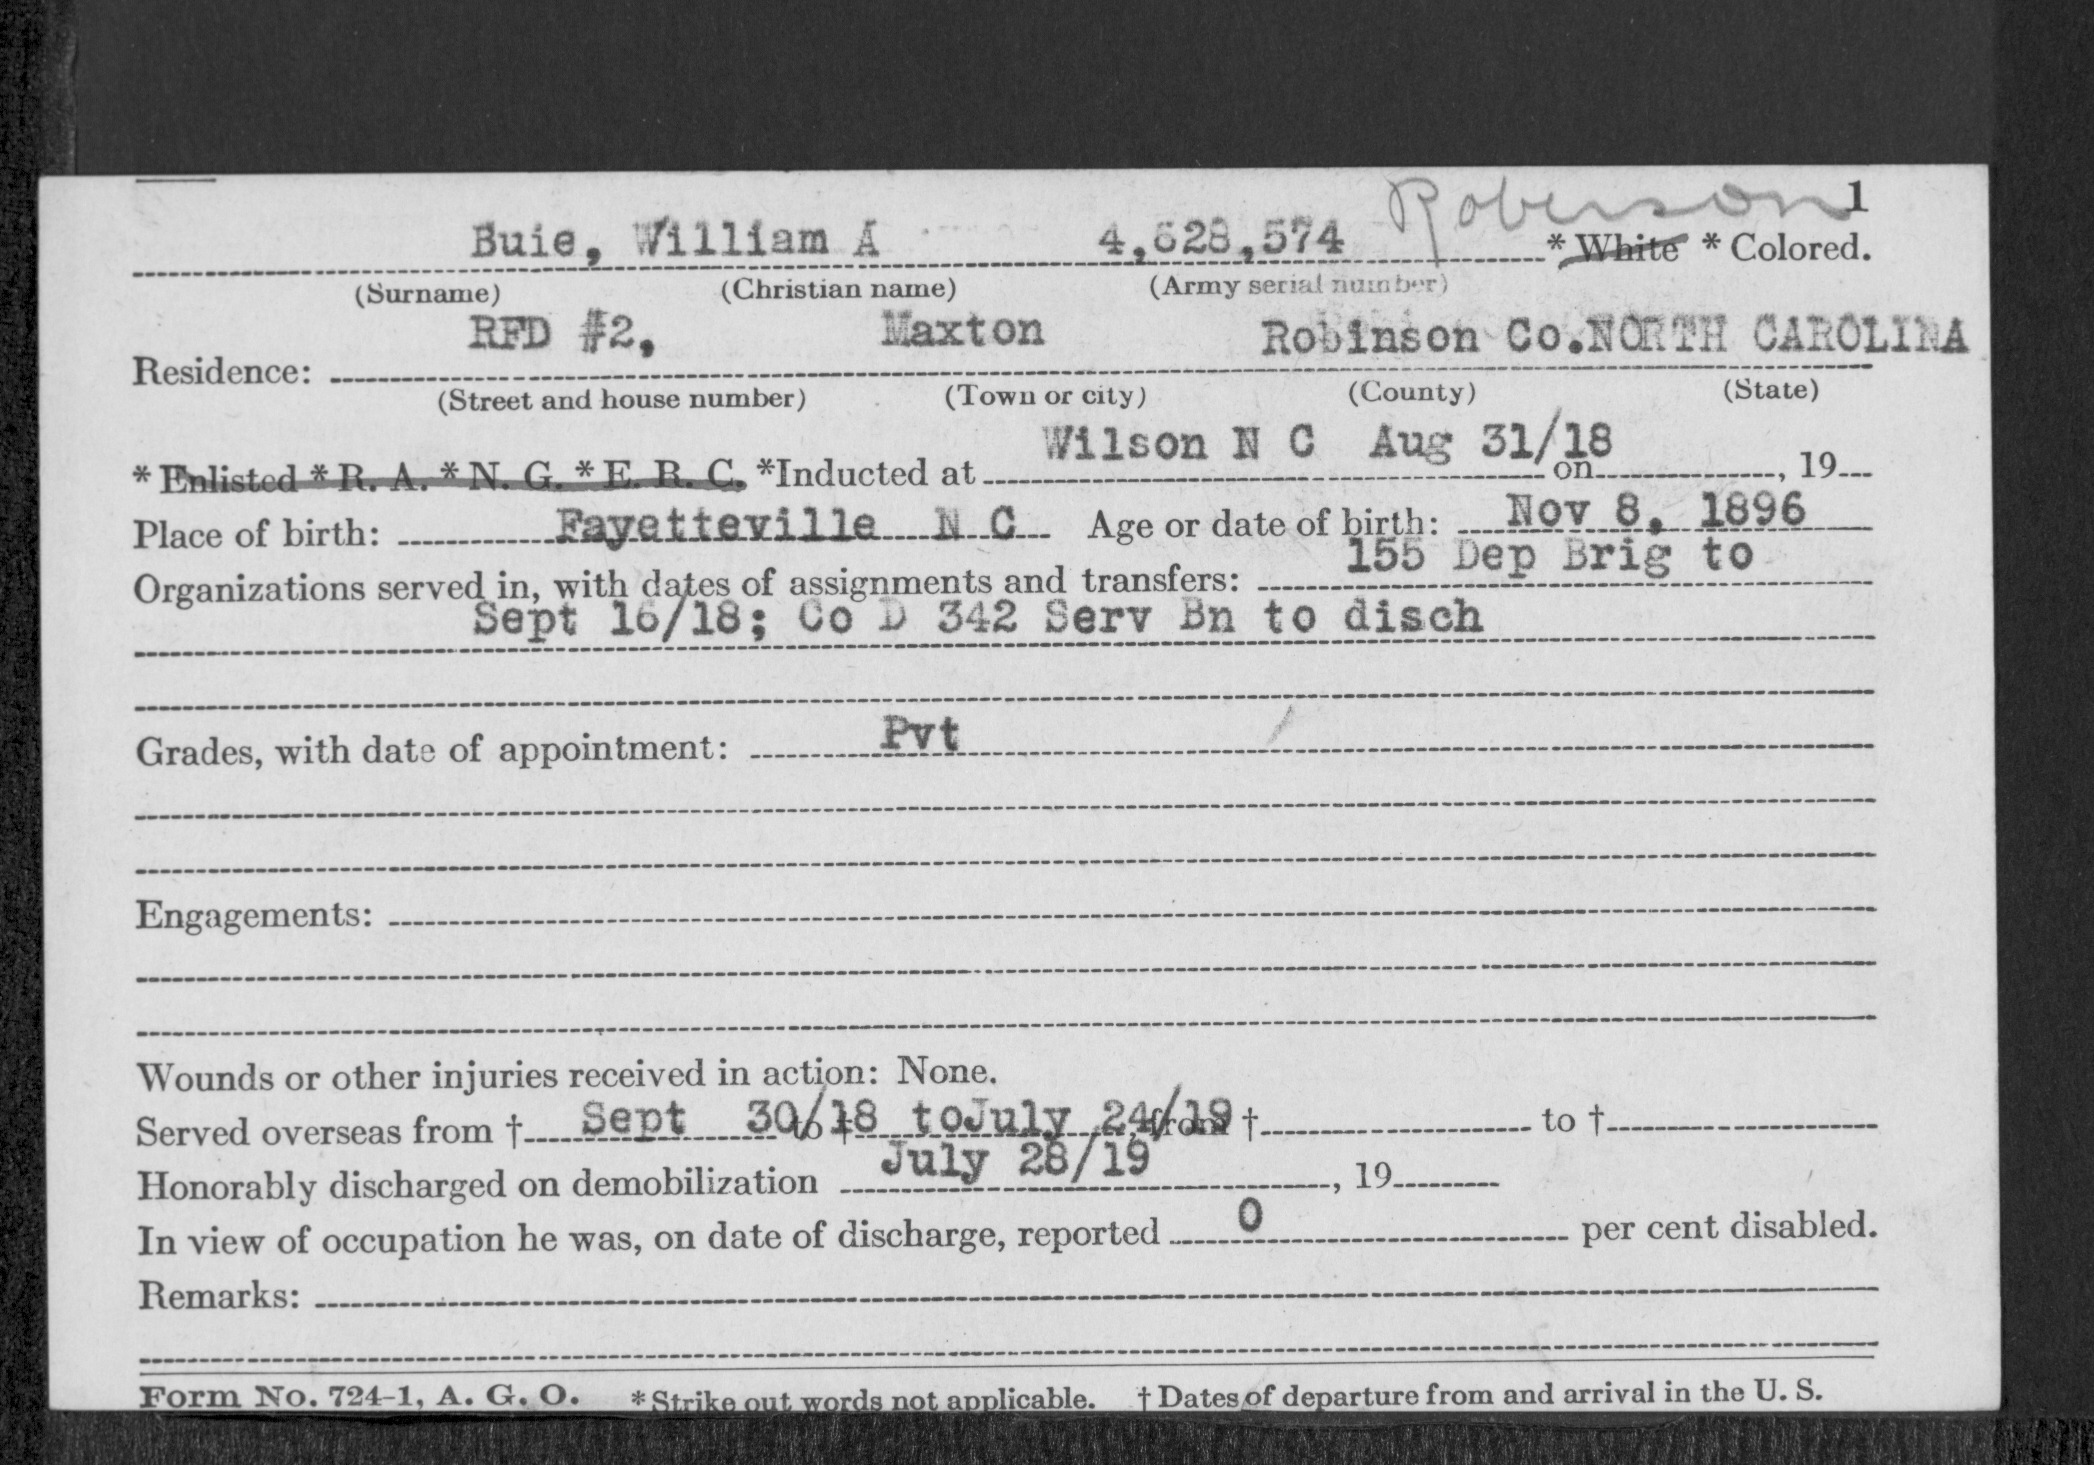 Robeson 1
Buie, William A 4,628,574 * White * Colored.
(Surname) (Christian name) (Army serial number)
RFD #2, Maxton Robinson Co. NORTH CAROLINA
Residence:
(Street and house number) (Town or city) (County) (State)
Wilson N C Aug 31/18
* Enlisted * R. A. * N. G. * E. R. C. *Inducted at on , 19
Place of birth: Fayetteville N C Age or date of birth: Nov 8, 1896
155 Dep Brig to
Organizations served in, with dates of assignments and transfers:
Sept 16/18; Co D 342 Serv Bn to disch
Grades, with date of appointment: Pvt
Engagements:
Wounds or other injuries received in action: None.
Served overseas from † Sept 30/18 to † to July 24/19 from † to †
July 28/19
Honorably discharged on demobilization , 19
In view of occupation he was, on date of discharge, reported 0 per cent disabled.
Remarks:
Form No. 724-1, A. G. O. * Strike out words not applicable. † Dates of departure from and arrival in the U. S.